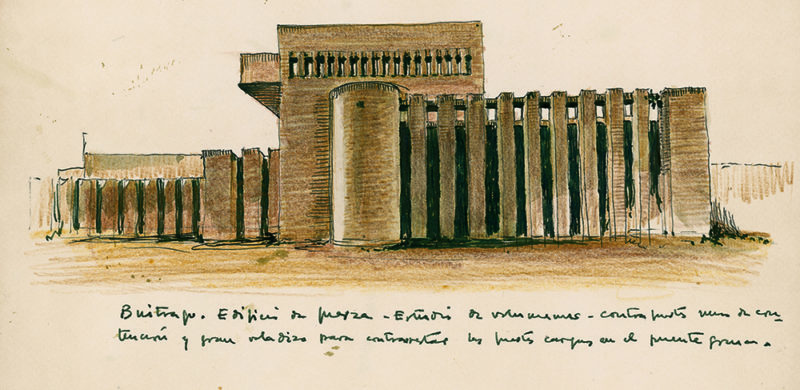 Buitrago. Edificio de fuerza - Estudio de volumenes - contrafuerte muro de con-
tención y gran voladizo para contrarrestar las fuertes cargas en el puente grua.